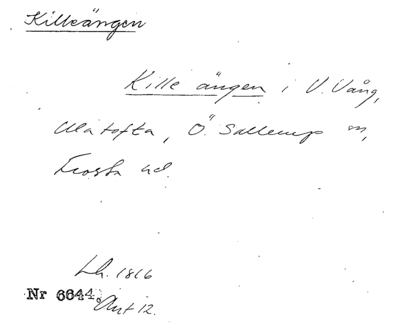 Killeängen
Kille ängen i V. Vång,
Ula tofta, Ö. Sallerup sn,
Frosta hd.
Lh. 1816
Nr 6644. Akt 12.